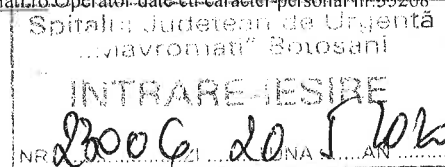 ati.ro Operator date cu caracter personal nr.35208
Spitalul Județean de Urgență
„Mavromati” Botoșani
INTRARE-IEȘIRE
NR 23006 ZI 20 NA 5 AN